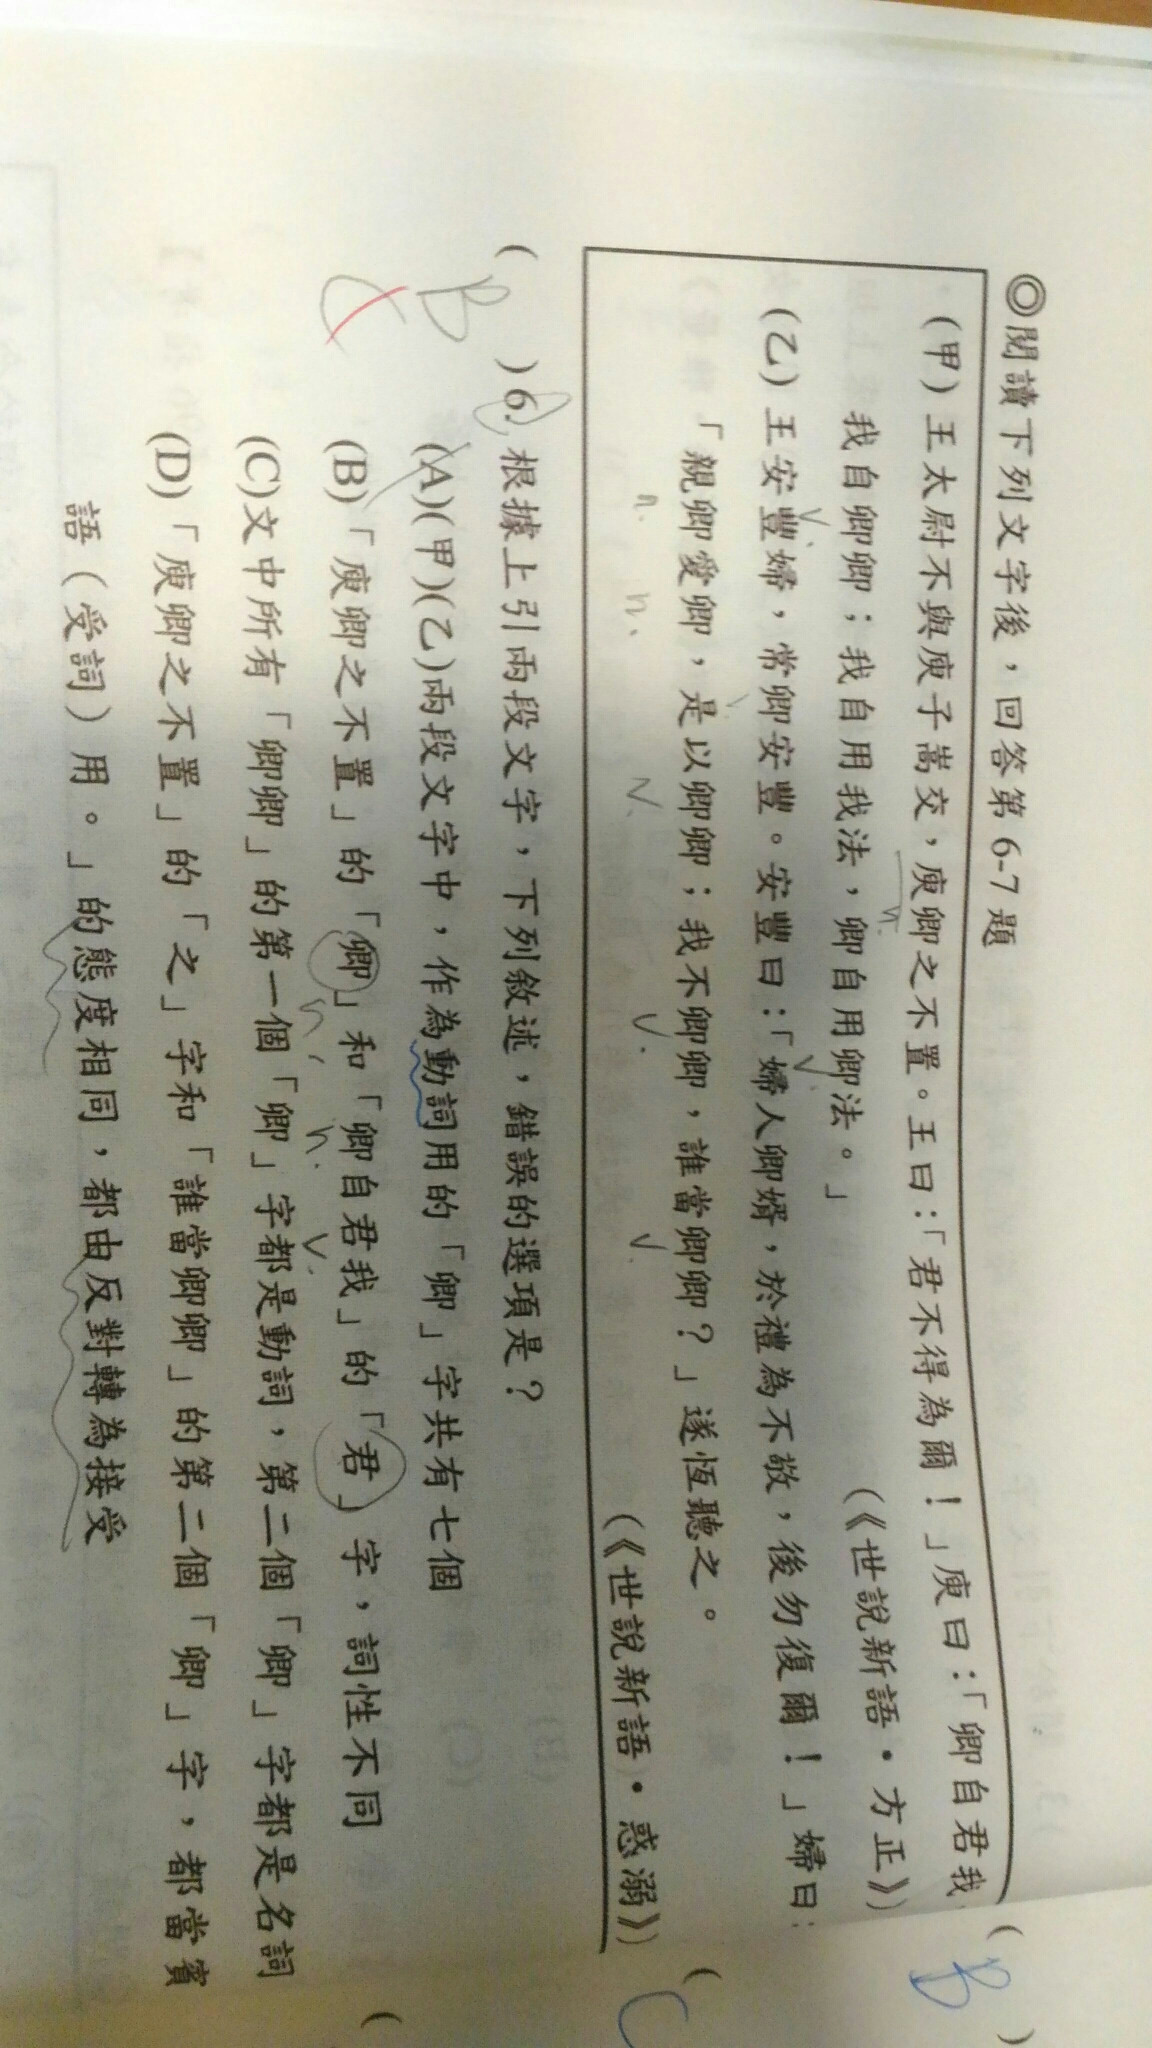 ◎閱讀下列文字後，回答第6-7題
(甲)王太尉不與庾子嵩交，庾卿之不置。王曰：「君不得為爾！」庾曰：「卿自君我
我自卿卿；我自用我法，卿自用卿法。」
(《世說新語·方正》)
(乙)王安豐婦，常卿安豐。安豐曰：「婦人卿婿，於禮為不敬，後勿復爾！」婦曰：
「親卿愛卿，是以卿卿；我不卿卿，誰當卿卿？」遂恆聽之。
(《世說新語·惑溺》)
( B )6.根據上引兩段文字，下列敘述，錯誤的選項是？
(A)(甲)(乙)兩段文字中，作為動詞用的「卿」字共有七個
(B)「庾卿之不置」的「卿」和「卿自君我」的「君」字，詞性不同
(C)文中所有「卿卿」的第一個「卿」字都是動詞，第二個「卿」字都是名詞
(D)「庾卿之不置」的「之」字和「誰當卿卿」的第二個「卿」字，都當賓
語(受詞)用。」的態度相同，都由反對轉為接受
v.
n.
v.
v.
n.
n.
v.
v.
v.
n.
n.
v.
C
( B )
( C
(